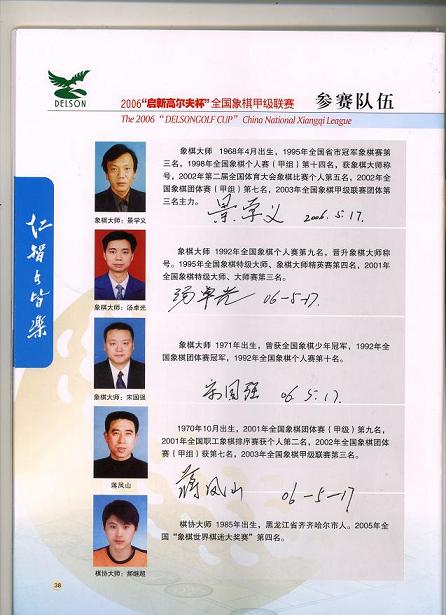 DELSON
2006“启新高尔夫杯”全国象棋甲级联赛 参赛队伍
The 2006 “DELSONGOLF CUP” China National Xiangqi League
仁智者皆乐
象棋大师 1968年4月出生，1995年全国省市冠军象棋赛第
三名，1998年全国象棋个人赛（甲组）第十四名，获象棋大师称
号，2002年第二届全国体育大会象棋比赛个人第五名，2002年全
国象棋团体赛（甲组）第七名，2003年全国象棋甲级联赛团体第
三名主力。
景学义 2006.5.17.
象棋大师：景学义
象棋大师 1992年全国象棋个人赛第九名，晋升象棋大师称
号。1995年全国象棋特级大师、象棋大师精英赛第四名，2001年
全国象棋特级大师、大师赛第三名。
汤卓光 06-5-17.
象棋大师：汤卓光
象棋大师 1971年出生，曾获全国象棋少年冠军，1992年全
国象棋团体赛冠军，1992年全国象棋个人赛第十名。
宋国强 06.5.17.
象棋大师：宋国强
1970年10月出生，2001年全国象棋团体赛（甲级）第九名，
2001年全国职工象棋排序赛获个人第二名，2002年全国象棋团体
赛（甲组）获第七名，2003年全国象棋甲级联赛第三名。
蒋凤山 06-5-17
蒋凤山
棋协大师 1985年出生，黑龙江省齐齐哈尔市人。2005年全
国“象棋世界棋迷大奖赛”第四名。
棋协大师：郝继超
38